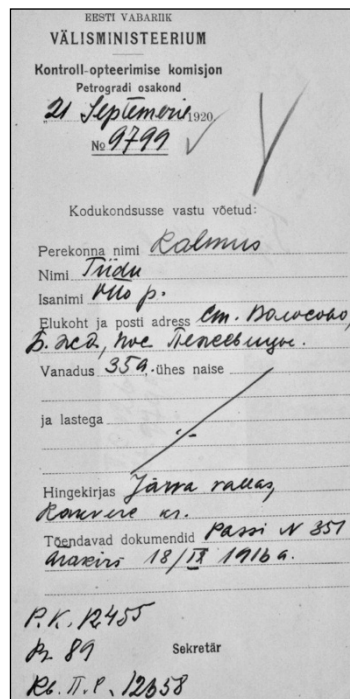 EESTI VABARIIK
VÄLISMINISTEERIUM
Kontroll-opteerimise komisjon
Petrogradi osakond
21 Septemeris 1920
№ 9799
Kodukondsusse vastu võetud:
Perekonna nimi Kalmus
Nimi Tiidu
Isanimi Otto p.
Elukoht ja posti adress Ст. Волосово,
Б. жд, пос
Vanadus 35 a. ühes naise
ja lastega
Hingekirjas vallas,
kr.
Tõendavad dokumendid Passi N 351
ärakiri 18/IX 1916 a.
P.K. 12455
89
Sekretär
12658